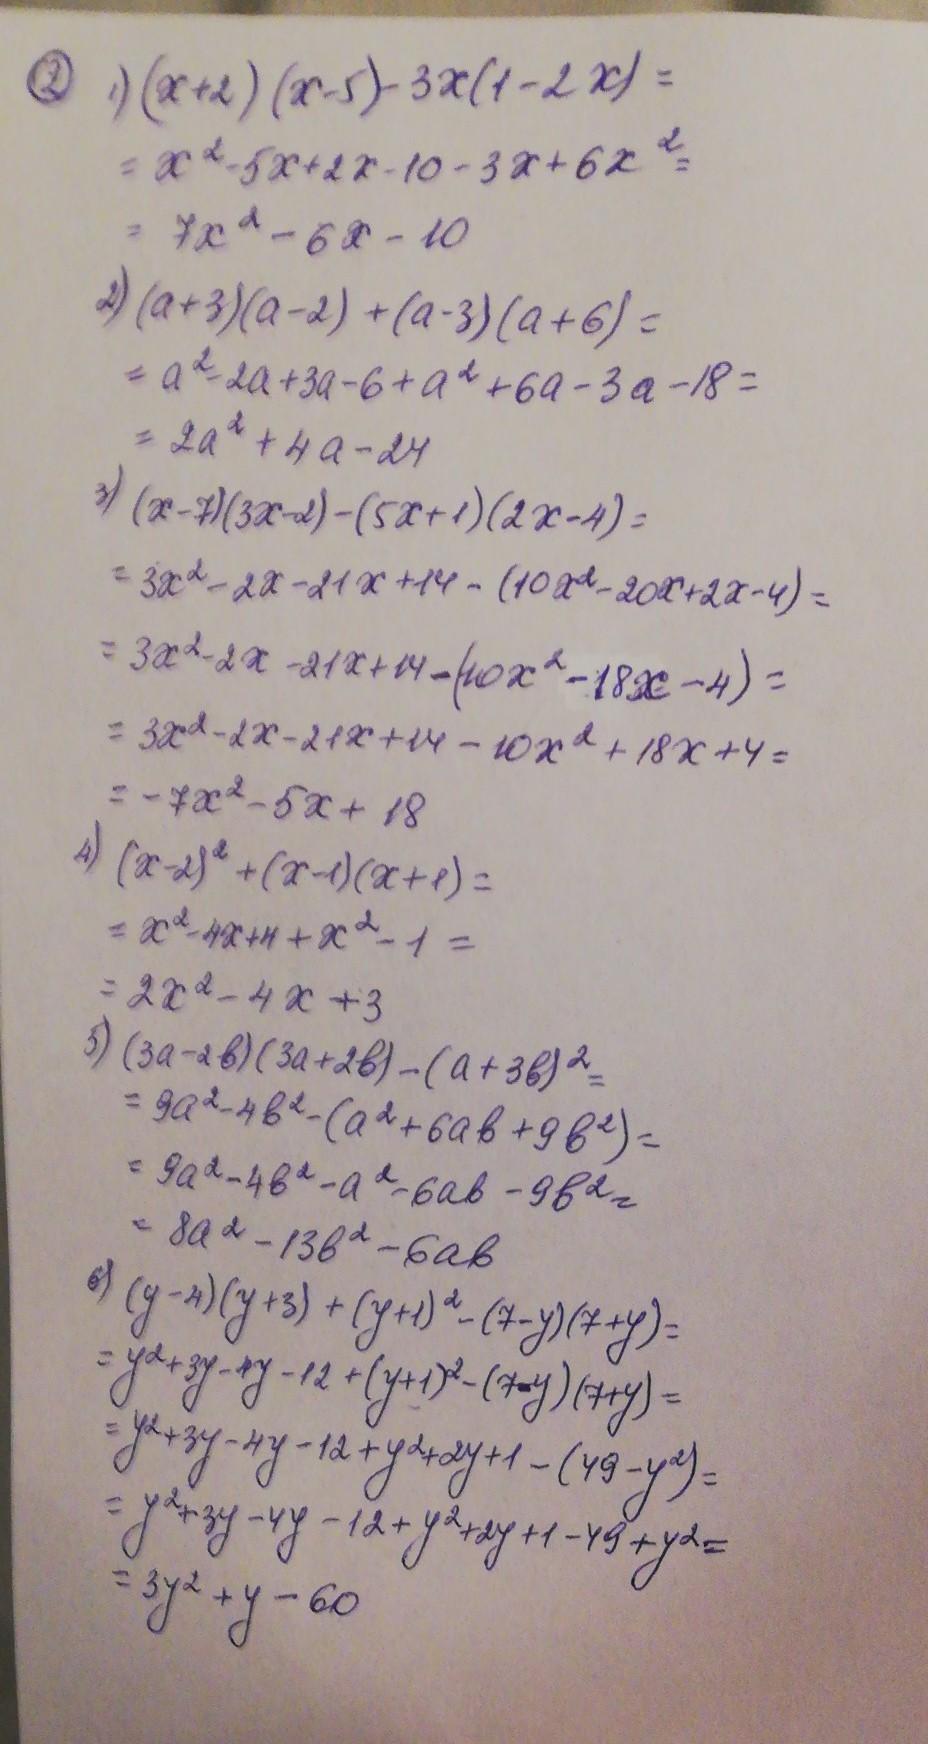 ② 1) (x+2)(x-5)-3x(1-2x)=
= x²-5x+2x-10-3x+6x²=
= 7x²-6x-10
2) (a+3)(a-2)+(a-3)(a+6)=
= a²-2a+3a-6+a²+6a-3a-18=
= 2a²+4a-24
3) (x-7)(3x-2)-(5x+1)(2x-4)=
= 3x²-2x-21x+14-(10x²-20x+2x-4)=
= 3x²-2x-21x+14-(10x²-18x-4)=
= 3x²-2x-21x+14-10x²+18x+4=
= -7x²-5x+18
4) (x-2)²+(x-1)(x+1)=
= x²-4x+4+x²-1=
= 2x²-4x+3
5) (3a-2b)(3a+2b)-(a+3b)²=
= 9a²-4b²-(a²+6ab+9b²)=
= 9a²-4b²-a²-6ab-9b²=
= 8a²-13b²-6ab
6) (y-4)(y+3)+(y+1)²-(7-y)(7+y)=
= y²+3y-4y-12+(y+1)²-(7-y)(7+y)=
= y²+3y-4y-12+y²+2y+1-(49-y²)=
= y²+3y-4y-12+y²+2y+1-49+y²=
= 3y²+y-60